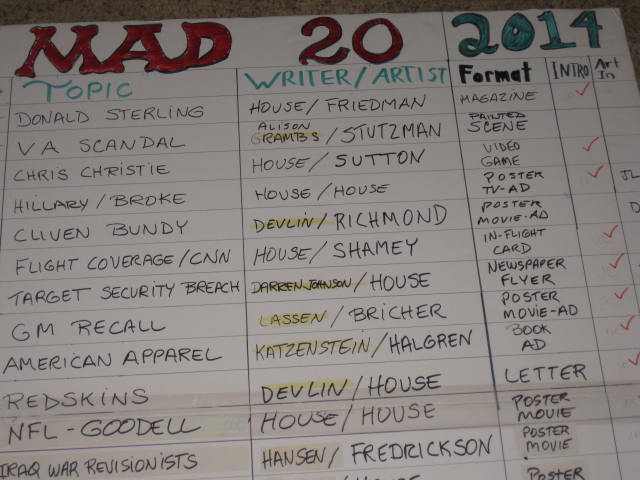 MAD 20 2014
TOPIC WRITER/ARTIST Format INTRO Art In
DONALD STERLING HOUSE/FRIEDMAN MAGAZINE
VA SCANDAL ALISON GRAMBS/STUTZMAN PAINTED SCENE
CHRIS CHRISTIE HOUSE/SUTTON VIDEO GAME
HILLARY/BROKE HOUSE/HOUSE POSTER TV-AD
CLIVEN BUNDY DEVLIN/RICHMOND POSTER MOVIE-AD
FLIGHT COVERAGE/CNN HOUSE/SHAMEY IN-FLIGHT CARD
TARGET SECURITY BREACH DARREN JOHNSON/HOUSE NEWSPAPER FLYER
GM RECALL LASSEN/BRICHER POSTER MOVIE-AD
AMERICAN APPAREL KATZENSTEIN/HALGREN BOOK AD
REDSKINS DEVLIN/HOUSE LETTER
NFL-GOODELL HOUSE/HOUSE POSTER MOVIE
IRAQ WAR REVISIONISTS HANSEN/FREDRICKSON POSTER MOVIE
POSTER